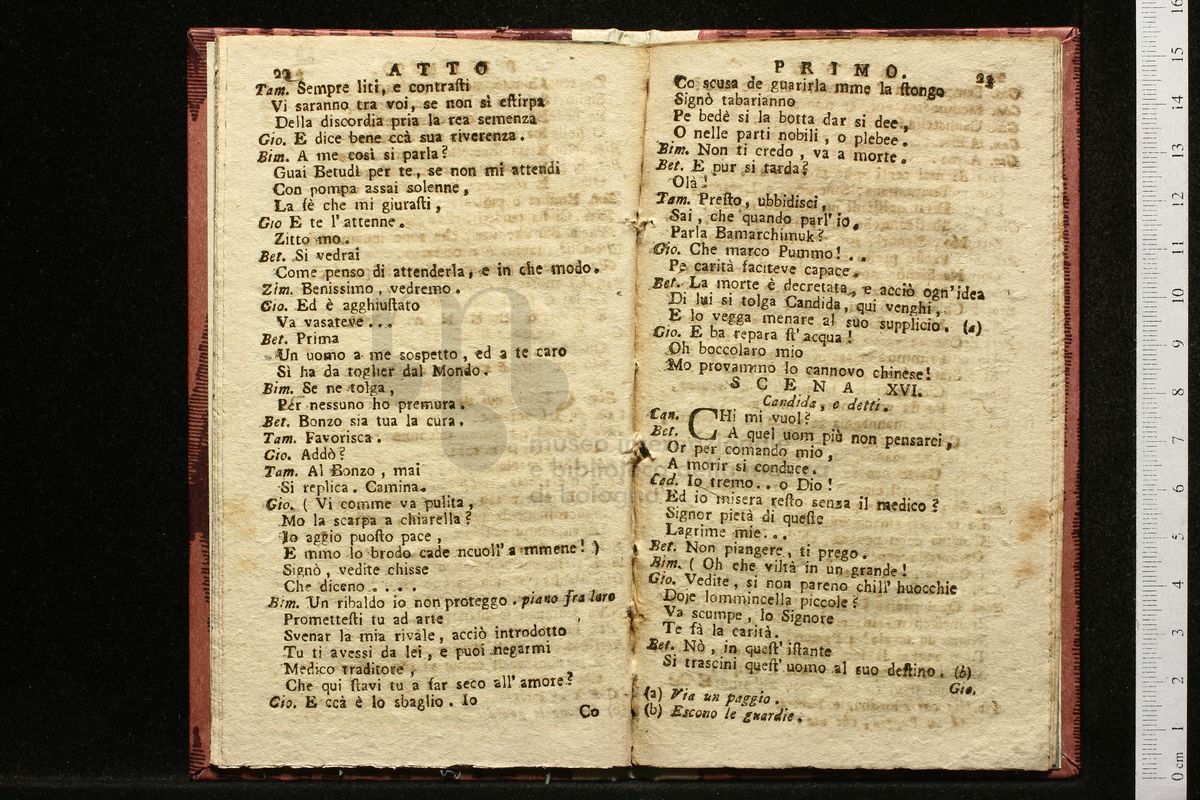 22 ATTO
Tam. Sempre liti, e contraſti
Vi saranno tra voi, se non sì eſtirpa
Della discordia pria la rea semenza
Gio. E dice bene ccà sua riverenza.
Bim. A me così si parla?
Guai Betudì per te, se non mi attendi
Con pompa assai solenne,
La fè che mi giuraſti,
Gio E te l'attenne.
Zitto mo.
Bet. Si vedrai
Come penso di attenderla, e in che modo.
Zim. Benissimo, vedremo.
Gio. Ed è agghiuſtato
Va vasateve...
Bet. Prima
Un uomo a me sospetto, ed a te caro
Sì ha da toglier dal Mondo.
Bim. Se ne tolga,
Pér nessuno ho premura.
Bet. Bonzo sia tua la cura.
Tam. Favorisca.
Gio. Addò?
Tam. Al Bonzo, mai
Si replica. Camina.
Gio. (Vi comme va pulita,
Mo la scarpa a chiarella?
Io aggio puoſto pace,
E mmo lo brodo cade ncuoll' a mmene!)
Signò, vedite chisse
Che diceno....
Bim. Un ribaldo io non proteggo. piano fra loro
Prometteſti tu ad arte
Svenar la mia rivale, acciò introdotto
Tu ti avessi da lei, e puoi negarmi
Medico traditore,
Che qui ſtavi tu a far seco all'amore?
Gio. E ccà è lo sbaglio. Io
Co
PRIMO. 23
Co scusa de guarirla mme la ſtongo
Signò tabarianno
Pe bedè si la botta dar si dee,
O nelle parti nobili, o plebee.
Bim. Non ti credo, va a morte.
Bet. E pur si tarda?
Olà!
Tam. Preſto, ubbidisci,
Sai, che quando parl' io,
Parla Bamarchimuk?
Gio. Che marco Pummo!..
Pe carità faciteve capace.
Bet. La morte è decretata, e acciò ogn'idea
Di lui si tolga Candida, qui venghi,
E lo vegga menare al suo supplicio. (a)
Gio. E ba repara ſt'acqua!
Oh boccolaro mio
Mo provammo lo cannovo chinese!
SCENA XVI.
Candida, e detti.
Can. CHi mi vuol?
Bet. A quel uom più non pensarci,
Or per comando mio,
A morir si conduce.
Cad. Io tremo.. o Dio!
Ed io misera reſto senza il medico?
Signor pietà di queſte
Lagrime mie...
Bet. Non piangere, ti prego.
Bim. (Oh che viltà in un grande!
Gio. Vedite, si non pareno chill' huocchie
Doje lommincella piccole?
Va scumpe, lo Signore
Te fà la carità.
Bet. Nò, in queſt' iſtante
Si trascini queſt' uomo al suo deſtino. (b)
Gio.
(a) Via un paggio.
(b) Escono le guardie.